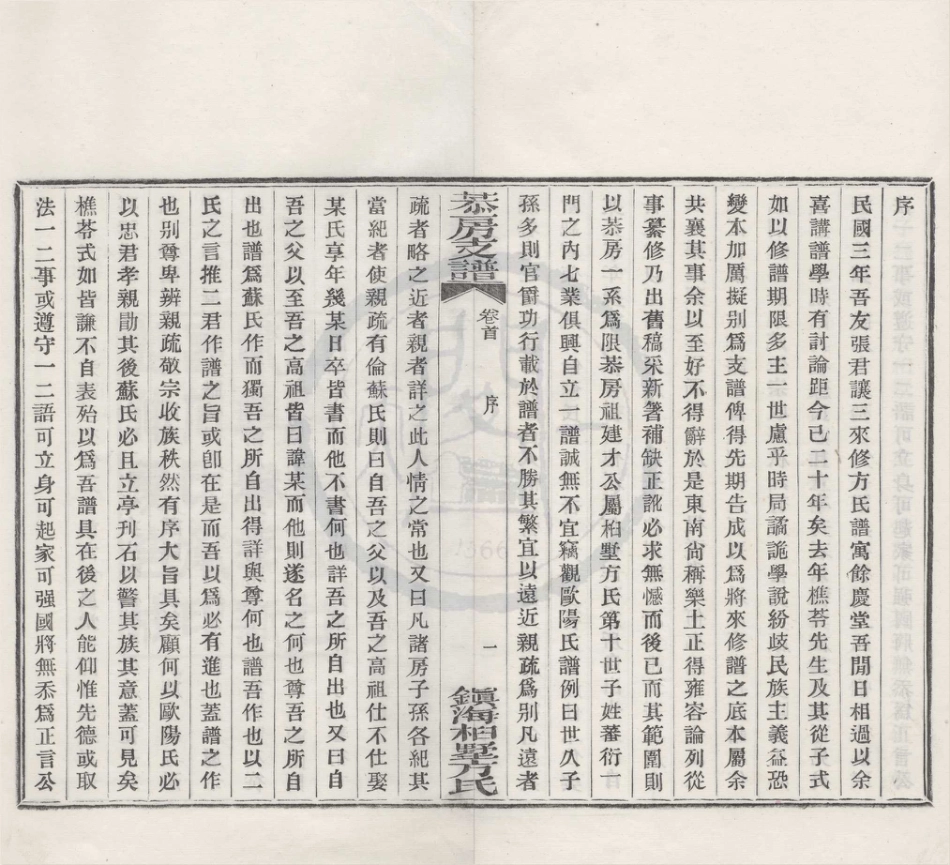 序
民國三年吾友張君讓三來修方氏譜寓餘慶堂吾閒日相過以余
喜講譜學時有討論距今已二十年矣去年樵苓先生及其從子式
如以修譜期限多主一世慮乎時局譎詭學說紛歧民族主義益恐
變本加厲擬別爲支譜俾得先期告成以爲將來修譜之底本屬余
共襄其事余以至好不得辭於是東南尙稱樂土正得雍容論列從
事纂修乃出舊稿采新箸補缺正訛必求無憾而後已而其範圍則
以㳟房一系爲限㳟房祖建才公屬桕墅方氏第十世子姓蕃衍一
門之內七業俱興自立一譜誠無不宜竊觀歐陽氏譜例曰世久子
孫多則官爵功行載於譜者不勝其繁宜以遠近親疏爲别凡遠者
㳟房支譜
卷首
序
一
鎭海桕墅方氏
疏者略之近者親者詳之此人情之常也又曰凡諸房子孫各紀其
當紀者使親疏有倫蘇氏則曰自吾之父以及吾之高祖仕不仕娶
某氏享年幾某日卒皆書而他不書何也詳吾之所自出也又曰自
吾之父以至吾之高祖皆曰諱某而他則遂名之何也尊吾之所自
出也譜爲蘇氏作而獨吾之所自出得詳與尊何也譜吾作也以二
氏之言推二君作譜之旨或卽在是而吾以爲必有進也蓋譜之作
也别尊卑辨親疏敬宗收族秩然有序大旨具矣顧何以歐陽氏必
以忠君孝親勖其後蘇氏必且立亭刊石以警其族其意蓋可見矣
樵苓式如皆謙不自表殆以爲吾譜具在後之人能仰惟先德或取
法一二事或遵守一二語可立身可起家可强國將無忝爲正言公